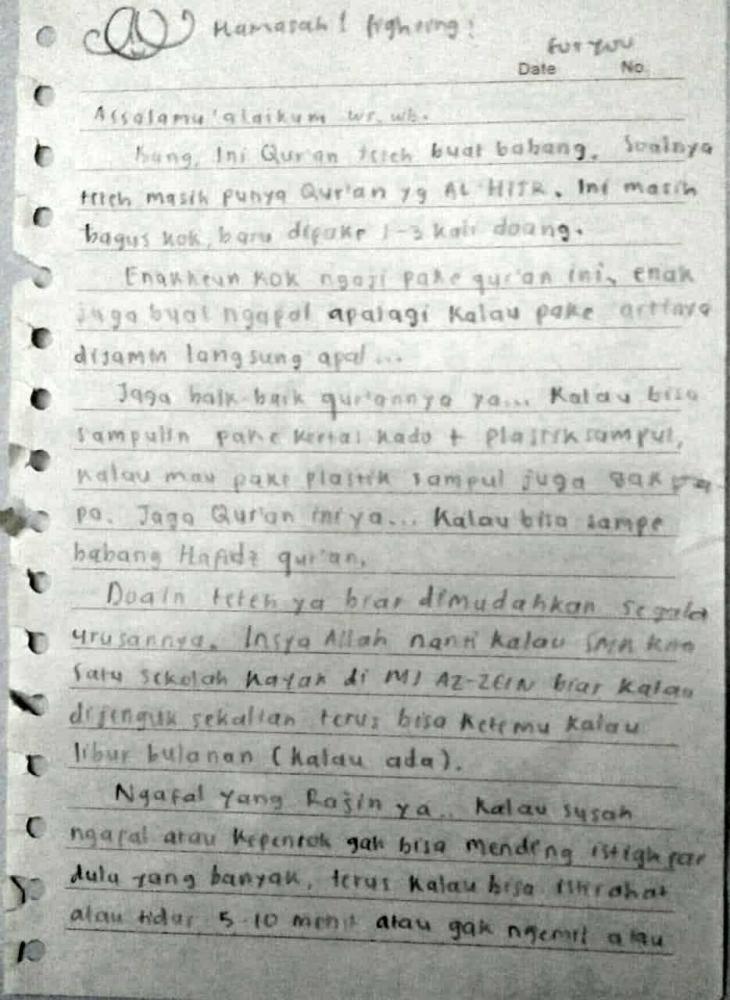 Hamasah! fighting!
For you
Date No.
Assalamu'alaikum wr. wb.
Bang, Ini Qur'an teteh buat babang. Soalnya
teteh masih punya Qur'an yg AL HITR. Ini masih
bagus kok, baru dipake 1-3 kali doang.
Enakheun kok ngaji pake qur'an ini, enak
juga buat ngapal apalagi kalau pake artinya
dijamin langsung apal...
Jaga baik-baik qur'annya ya... Kalau bisa
sampulin pake kertas kado + plastik sampul,
kalau mau pake plastik sampul juga gak pa-
pa. Jaga Qur'an ini ya... Kalau bisa sampe
babang Hafidz qur'an.
Doain teteh ya biar dimudahkan segala
urusannya. Insya Allah nanti kalau SMA kita
satu sekolah kayak di MI AZ-ZEIN biar kalau
dijenguk sekalian terus bisa ketemu kalau
libur bulanan (kalau ada).
Ngafal yang Rajin ya.. Kalau susah
ngapal atau kepentok gak bisa mending istighpar
dulu yang banyak, terus kalau bisa istirahat
atau tidur 5-10 menit atau gak ngemil atau